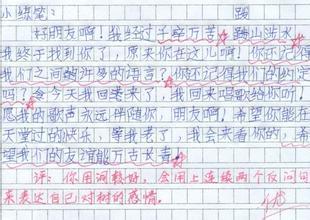 小练笔：
好朋友啊！我经过千辛万苦，跋山涉水，
我终于找到你了，原来你在这儿啊！你还记得
我们之间的许多的语言？你还记得我们的约定
吗？今天我回来了，我回来唱歌给你听！
愿我的歌声永远伴随你，朋友啊！希望你能在
天堂过的快乐，等我老了，我会来看你的，希
望我们的友谊能万古长青！
评：你用词较好，会用上连续两个反问句
来表达自己对树的感情。
优